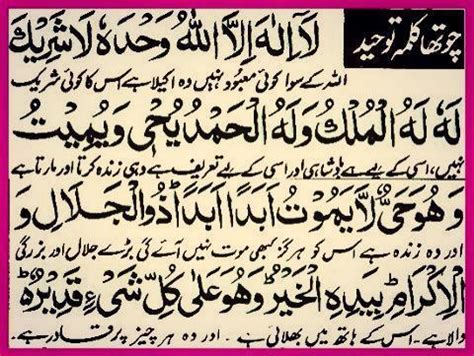 چوتھا کلمہ توحید
لَا اِلٰهَ اِلَّا اللهُ وَحْدَهٗ لَا شَرِيْكَ
اللہ کے سوا کوئی معبود نہیں وہ اکیلا ہے اس کا کوئی شریک
لَهٗ لَهُ الْمُلْكُ وَلَهُ الْحَمْدُ يُحْىٖ وَيُمِيْتُ
نہیں، اسی کے لیے ہے بادشاہی اور اسی کے لیے تعریف ہے وہی زندہ کرتا اور مارتا ہے
وَهُوَحَىٌّ لَّا يَمُوْتُ اَبَدًا اَبَدًا ذُوالْجَلَالِ وَ
اور وہ زندہ ہے اس کو ہرگز کبھی موت نہیں آئے گی بڑے جلال اور بزرگی
الْاِكْرَامِ بِيَدِهِ الْخَيْرُ وَهُوَعَلٰى كُلِّ شَىْءٍ قَدِيْرٌ
والا ہے۔ اس کے ہاتھ میں بھلائی ہے۔ اور وہ ہر چیز پر قادر ہے۔